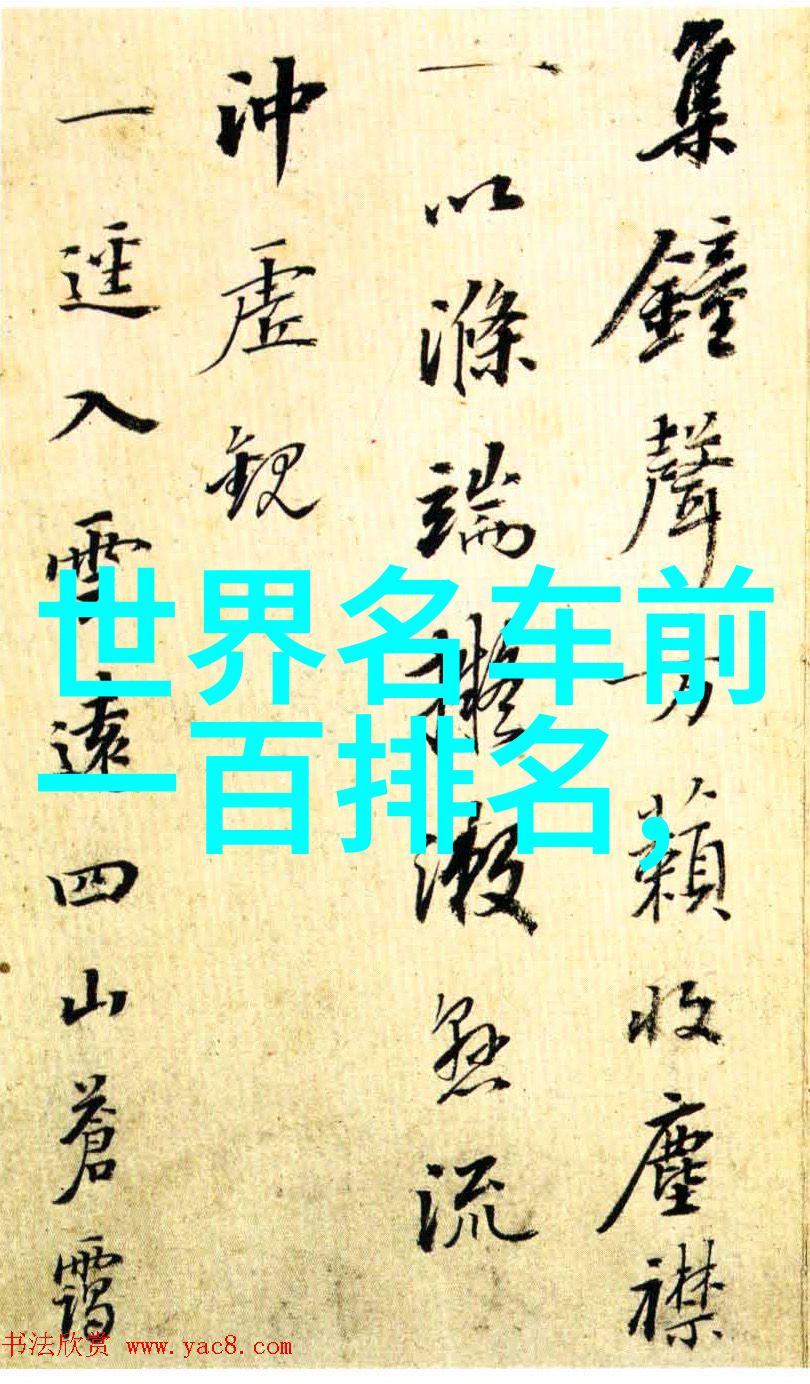 集鐘聲万籟收塵襟
一以滌端擬漱懸流
沖虛觀
一逕入雲遠四山蒼靄
世界名车前
一百排名,
书法欣赏 www.yac8.com